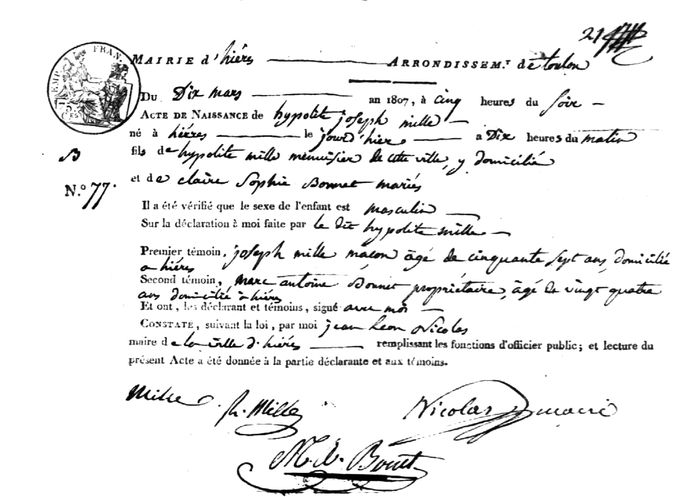 21
EMP. FRAN.
MAIRIE d'hiéres ARRONDISSEM.T de toulon
DU Dix mars an 1807, à cinq heures du Soir
ACTE DE NAISSANCE de hypolite joseph mille
né à hiéres le jourd'hier a Dix heures du matin
B
fils de hypolite mille menuisier de cette ville, y domicilié
et de claire Sophie Bonnet mariés
N.° 77.
Il a été vérifié que le sexe de l'enfant est masculin
Sur la déclaration à moi faite par le dit hypolite mille
Premier témoin, joseph mille maçon âgé de cinquante sept ans, domicilié
a hiéres
Second témoin, marc antoine Bonnet propriétaire, âgé de vingt quatre
ans domicilié à hiéres
Et ont, les déclarant et témoins, signé avec moi
CONSTATÉ, suivant la loi, par moi jean Leon Nicolas
maire de la ville d'hiéres remplissant les fonctions d'officier public; et lecture du
présent Acte a été donnée à la partie déclarante et aux témoins.
Mille h. Mille Nicolas maire